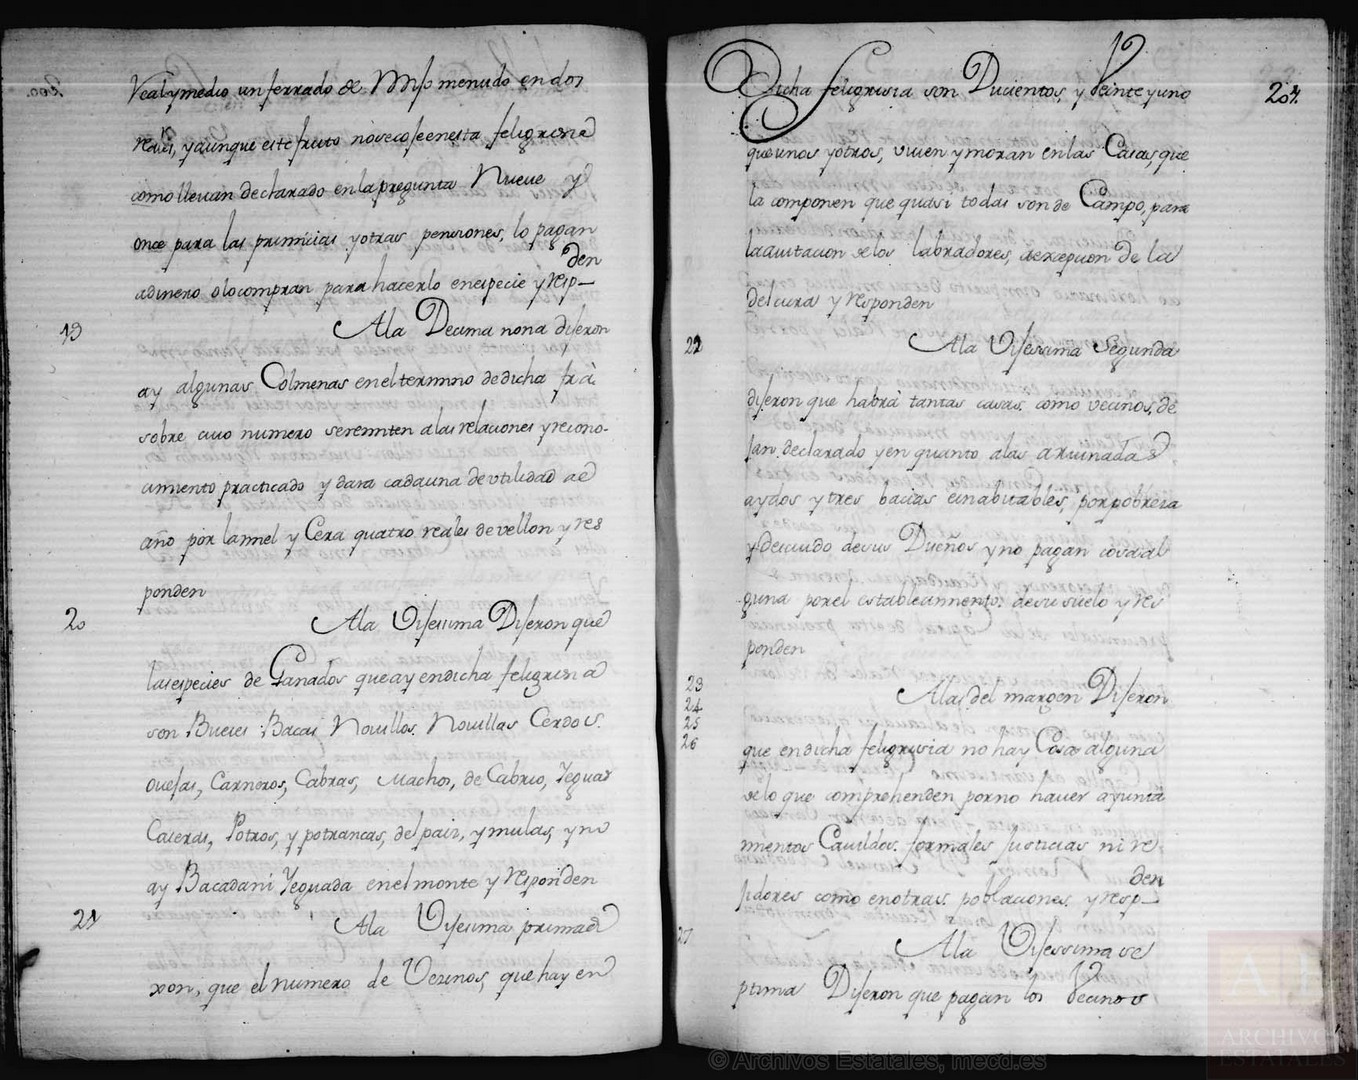 real y medio un ferrado de Millo menudo en dos
reales, y aunque este fruto no se cose en esta feligresia
como llevan declarado en la pregunta Nueve y
once para las primicias y otras pensiones, lo pagan
a dinero o lo compran para hacerlo en especie y resp—den
19
A la Decima nona dijeron
ay algunas Colmenas en el termino de dicha fra
sobre cuio numero se remiten a las relaciones y recono-
cimiento practicado y dara cada una de utilidad al
año por la miel y Cera quatro reales de vellon y res
ponden
20
A la Visessima Dijeron que
las especies de Ganados que ay en dicha feligresia
son Bueies Bacas Novillos, Novillas Cerdos.
ovejas, Carneros, Cabras, Machos, de Cabrio, Yeguas
Caseras, Potros, y potrancas, del pais, y mulas, y no
ay Bacada ni Yeguada en el monte y responden
21
A la Visesima primera di
xeron, que el numero de Vecinos, que hay en
204.
Dicha feligresia son Ducientos, y veinte y uno
que unos y otros, viven y moran en las Casas, que
la componen que quasi todas son de Campo, para
la avitacion de los labradores, a excepcion de la
del cura y responden
22
A la Visessima Segunda
dijeron que habrá tantas casas como vecinos, de
jan declarado y en quanto a las arruinadas
ay dos y tres bacias einabitables, por pobreza
y descuido de sus Dueños y no pagan cosa al
guna por el establecimiento de su suelo y res
ponden
23
24
25
26
A las del margen Dijeron
que en dicha feligresia no hay Cosa alguna
de lo que comprehenden por no haver ayunta
mentos Cavildos. formales Justicias ni re
jidores como en otras poblaciones, y resp—den
27
A la Visessima se
ptima Dijeron que pagan los vecinos
© Archivos Estatales, mecd.es
ARCHIVOS
ESTATALES